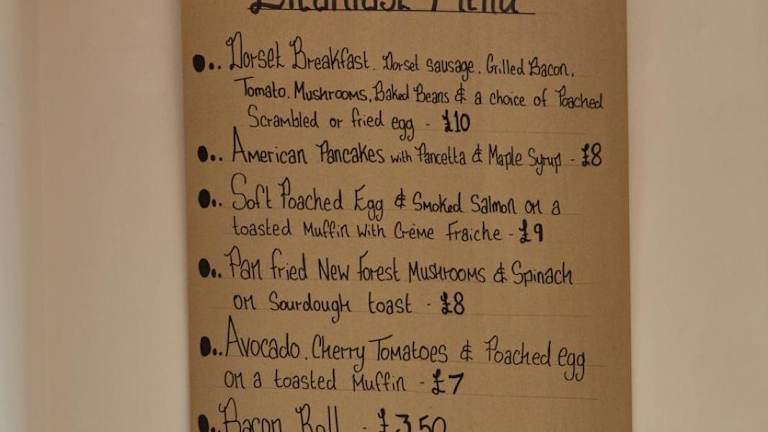 Breakfast Menu
Dorset Breakfast. Dorset sausage. Grilled Bacon.
Tomato. Mushrooms, Baked Beans & a choice of Poached
Scrambled or fried egg - £10
American Pancakes with Pancetta & Maple Syrup - £8
Soft Poached Egg & Smoked Salmon on a
toasted Muffin with Crème Fraiche - £9
Pan fried New Forest Mushrooms & Spinach
on Sourdough toast - £8
Avocado. Cherry Tomatoes & Poached egg
on a toasted Muffin - £7
Bacon Roll - £3.50